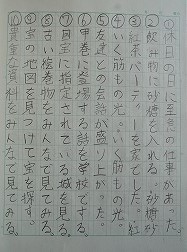 ①休日の日に至急の仕事があった。
②飲み物に砂糖を入れる。砂糖 砂
③紅茶パーティーを家でした。紅
④いく筋もの光。いく筋もの光。
⑤友達との会話が盛り上がった。
⑥甲巻に登場する話を学校でする。
⑦国宝に指定されている城を見る。
⑧古い絵巻物をみんなで見てみる。
⑨宝の地図を見つけて宝を探す。
⑩貴重な資料をみんなで見てみる。